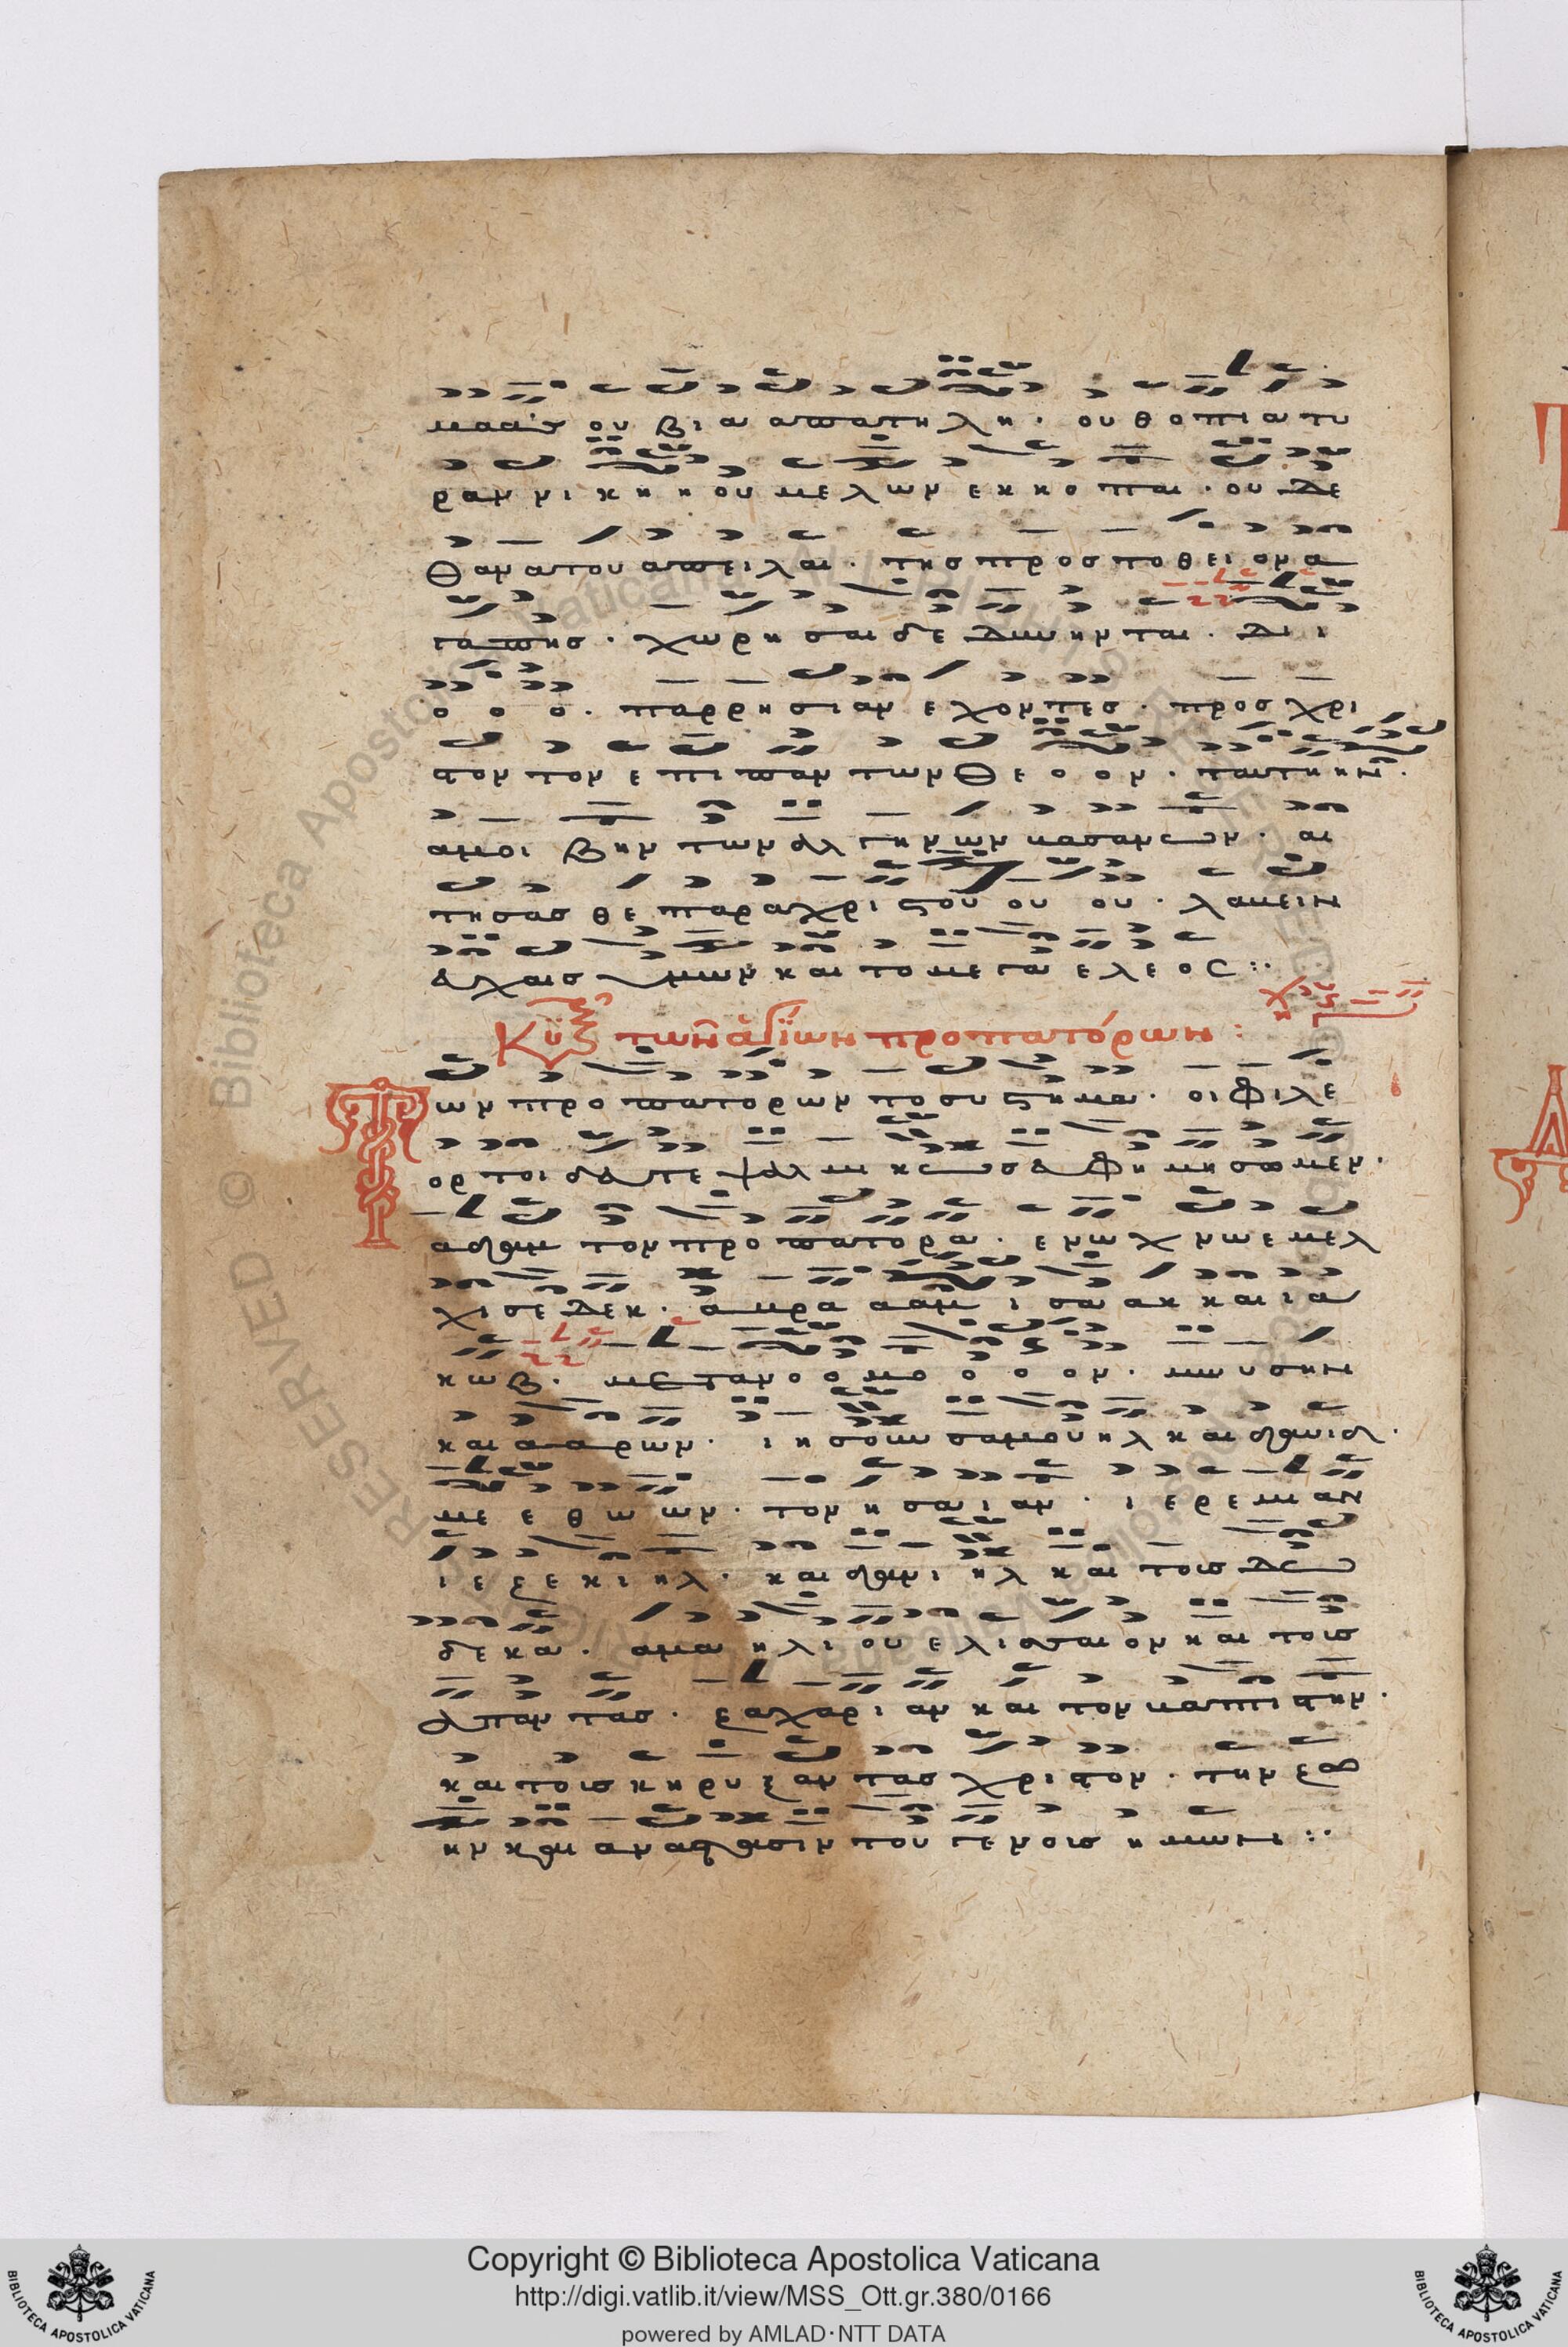 μασ ου βια απατηλη · ου θοπια τυ
ραννικη η ου μελων εκκοπαι · ου δε
θανατου απειλαι · της προστεθει ονα
χωρησαι δε δυνηνται · δι ι
ο ο ο · παρρησιαν εχοντες · προς χρι
στον τον επι παν των θε ο ον · ταυτην
αμοι βην των αλγηνων
τησασθε παρα χριστου ου ου · λαβειν
ευχαις υμων και το μεγα ελεος ::
Κυ των αγίων προπατόρων :
Των προπατορων το συστημα · οι φιλε
ορτοι δευτε ψαλμικως ευφημησωμεν ·
αδαμ τον προπατορα · ενωχ νωε μελ
χισεδεκ · αβρααμ ισαακ και ια
κωβ · μετα νο ο μο ο ο ον · μωυσην
και ααρων · ιησουν σαμουηλ και δαυιδ ·
με εθ ω ων · τον ησαιαν · ιερεμιαν
ιεζεκιηλ · και δανιηλ και τους δω
δεκα · αμα ηλιου ελισσαιον και τους
απαντας · ζαχαριαν και τον βαπτιστην ·
και τους κηρυξαντας χριστον · την ζω
ην και αναστασιν του γενους ημων ::
Copyright © Biblioteca Apostolica Vaticana
http://digi.vatlib.it/view/MSS_Ott.gr.380/0166
powered by AMLAD·NTT DATA
BIBLIOTECA APOSTOLICA VATICANA
BIBLIOTECA APOSTOLICA VATICANA